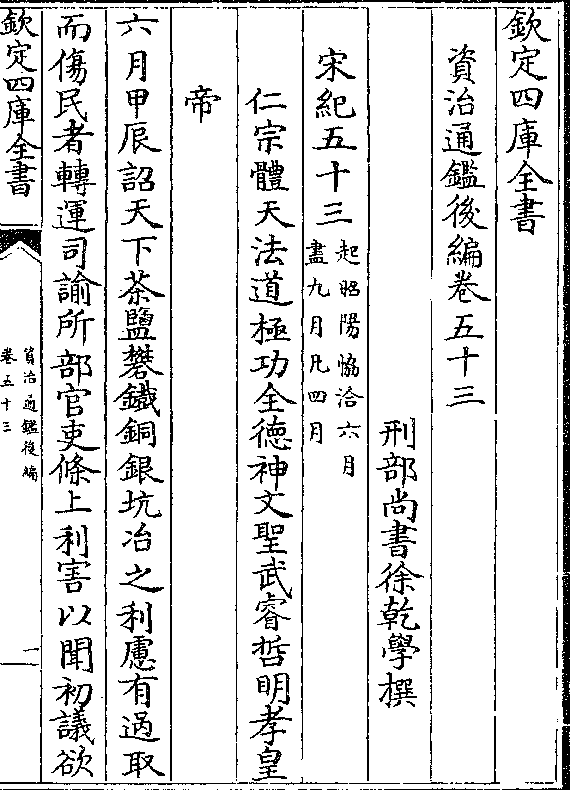 欽定四庫全書
資治通鑑後編卷五十三
刑部尚書徐乾學撰
宋紀五十三起昭陽協洽六月
盡九月凡四月
仁宗體天法道極功全德神文聖武睿哲明孝皇
帝
六月甲辰詔天下茶鹽礬鐵銅銀坑冶之利慮有過取
而傷民者轉運司諭所部官吏條上利害以聞初議欲
欽定四庫全書
資治通鑑後編
卷五十三
一